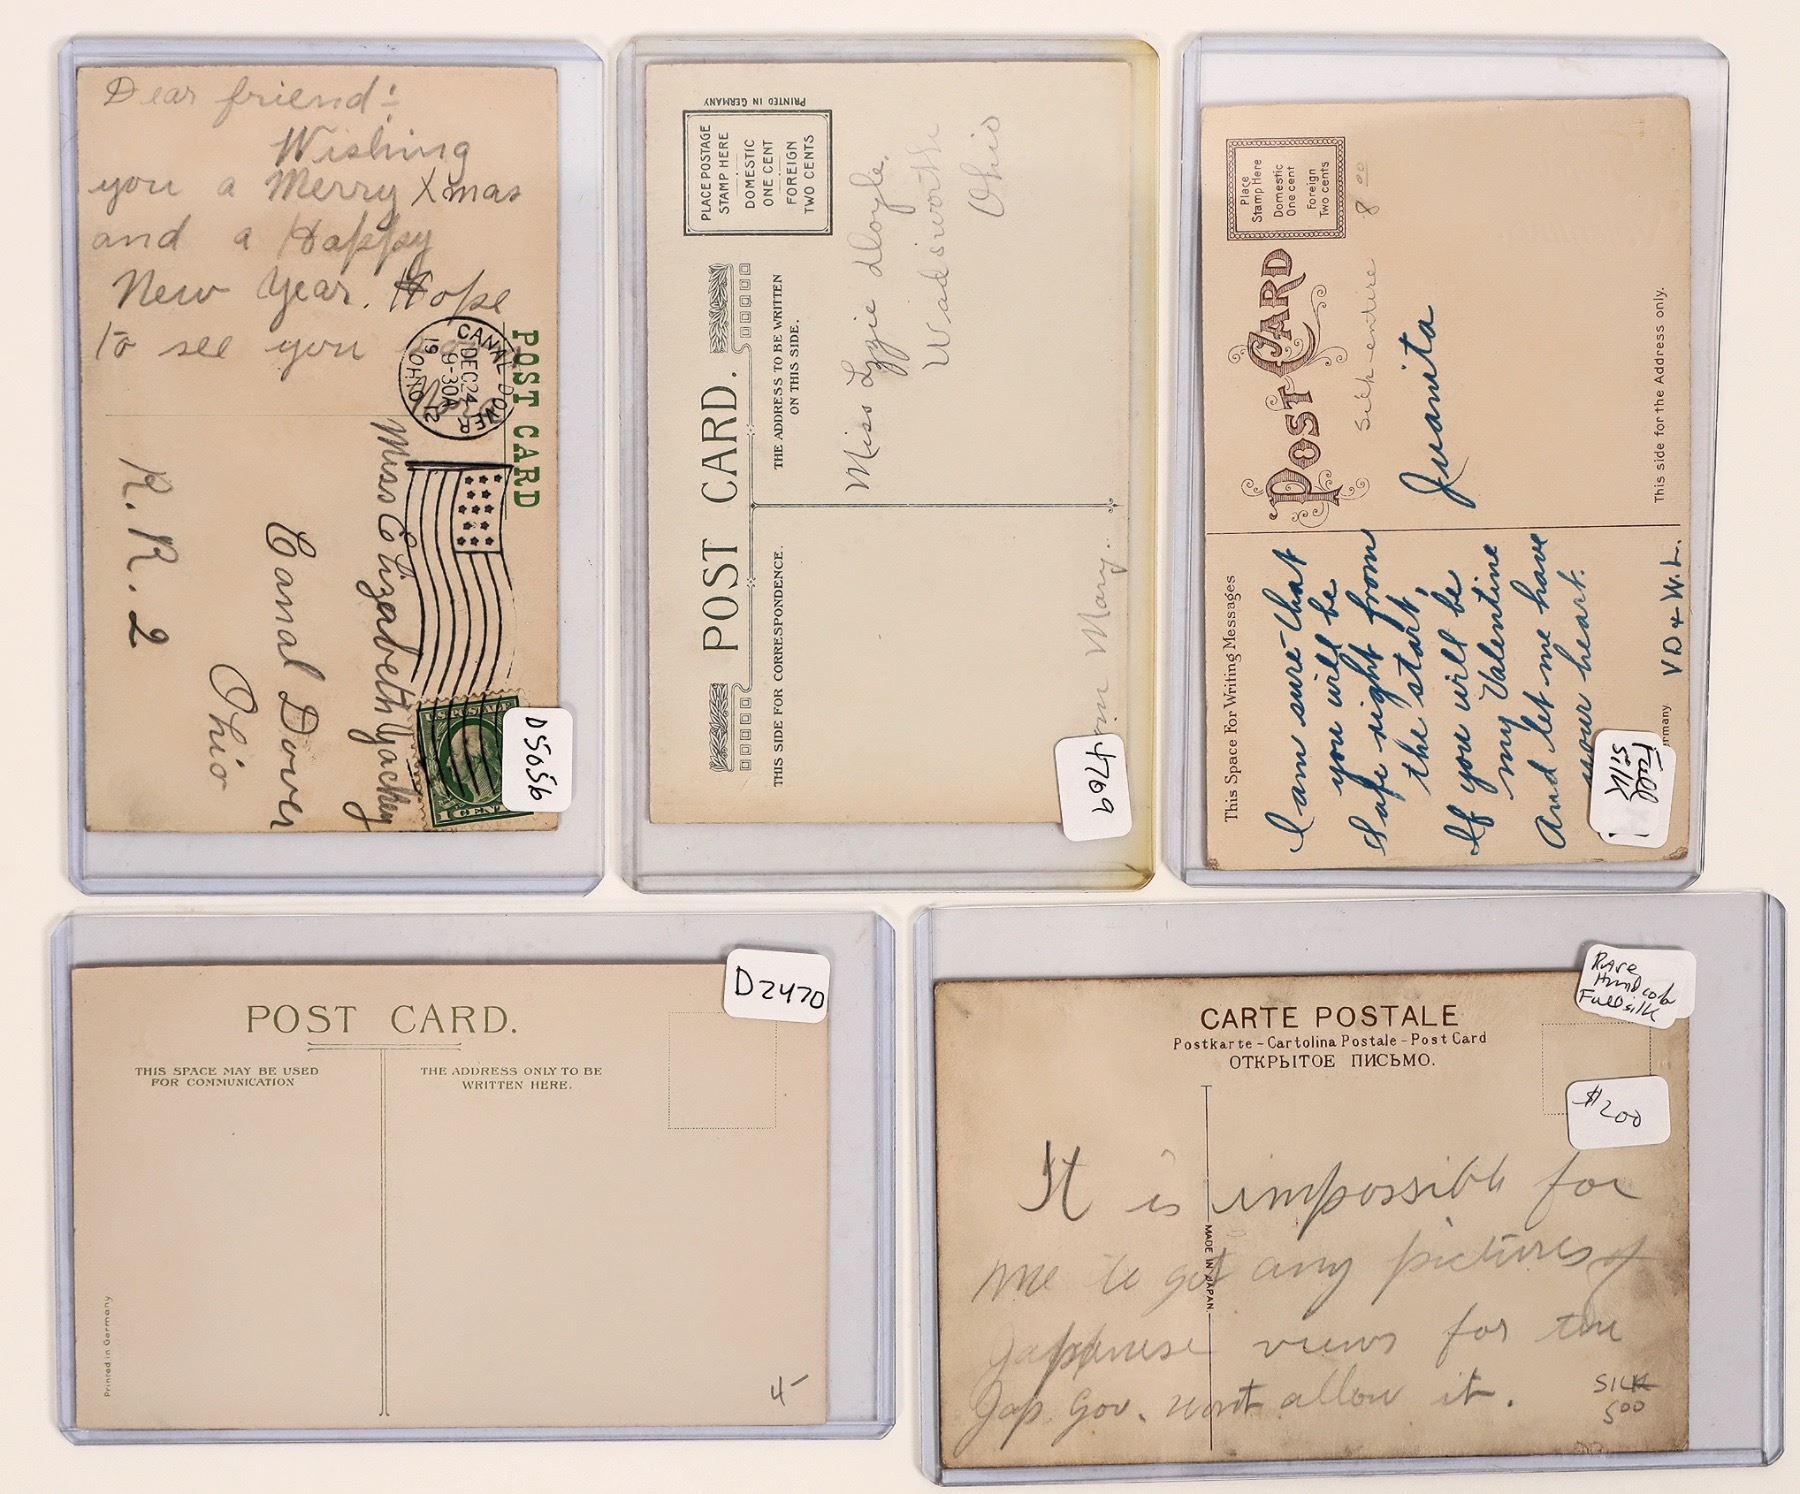 Dear friend:
Wishing
you a Merry Xmas
and a Happy
New Year. Hope
to see you
POST CARD
CANAL DOVER
DEC 24
9-30A
19 12
OHIO
Miss Elizabeth Yackey
Canal Dover
Ohio
R. R. 2
U.S. POSTAGE
D5056
PRINTED IN GERMANY
PLACE POSTAGE
STAMP HERE
DOMESTIC
ONE CENT
FOREIGN
TWO CENTS
POST CARD.
THE ADDRESS TO BE WRITTEN
ON THIS SIDE.
THIS SIDE FOR CORRESPONDENCE.
Miss Lizzie Doyle.
Wadsworth
Ohio
Mary.
4769
Place
Stamp Here
Domestic
One cent
Foreign
Two cents
8 00
POST CARD
Silk-entire
Juanita
This side for the Address only.
This Space For Writing Messages
I am sure that
you will be
Safe right from
the start,
If you will be
my Valentine
And let me have
your heart.
VD & W.L.
rmany
Full
SilK
POST CARD.
THIS SPACE MAY BE USED
FOR COMMUNICATION
THE ADDRESS ONLY TO BE
WRITTEN HERE.
D2470
Printed in Germany
4-
CARTE POSTALE
Postkarte - Cartolina Postale - Post Card
ОТКРЫТОЕ ПИСЬМО.
RAre
Full silk
$200
MADE IN JAPAN.
It is impossible for
me to get any pictures of
Japanese views for the
Jap. Gov. wont allow it.
SILK
500